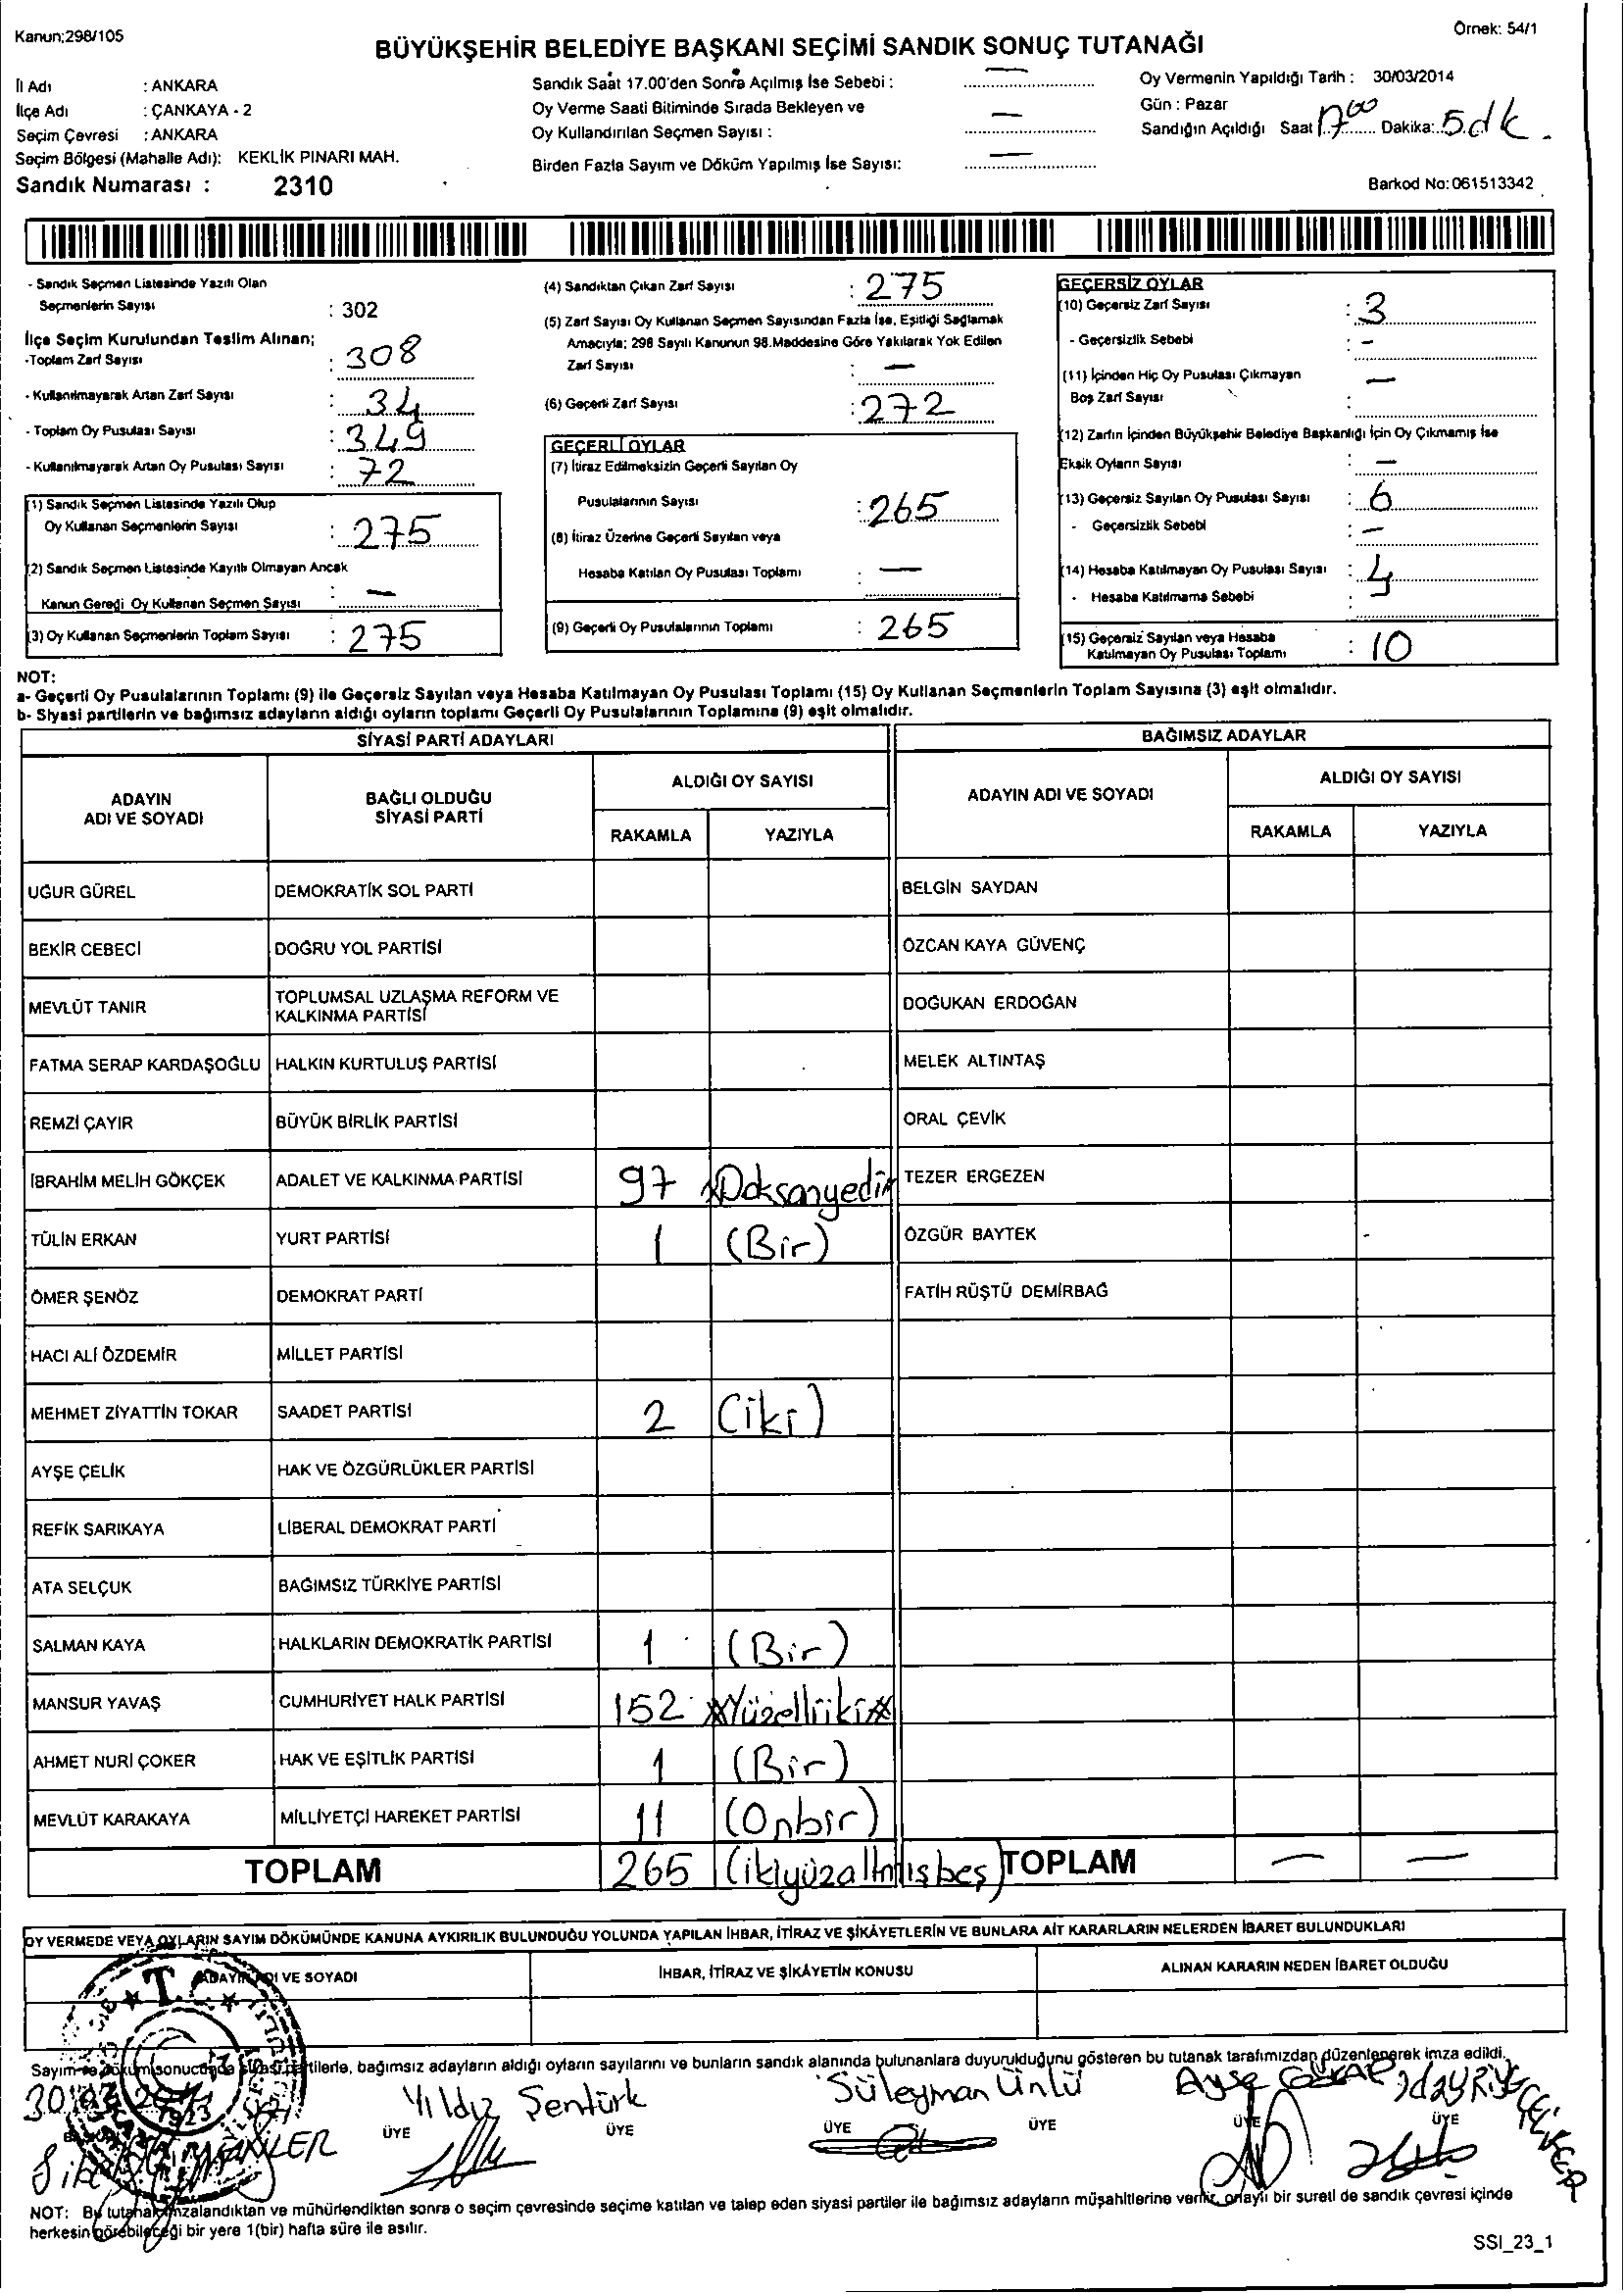 Kanun:298/105
Örnek: 54/1
BÜYÜKŞEHİR BELEDİYE BAŞKANI SEÇİMİ SANDIK SONUÇ TUTANAĞI
İl Adı : ANKARA
İlçe Adı : ÇANKAYA - 2
Seçim Çevresi : ANKARA
Seçim Bölgesi (Mahalle Adı): KEKLİK PINARI MAH.
Sandık Numarası : 2310
Sandık Saat 17.00'den Sonra Açılmış İse Sebebi : —
Oy Verme Saati Bitiminde Sırada Bekleyen ve
Oy Kullandırılan Seçmen Sayısı : —
Birden Fazla Sayım ve Döküm Yapılmış İse Sayısı: —
Oy Vermenin Yapıldığı Tarih : 30/03/2014
Gün : Pazar
Sandığın Açıldığı Saat 17.00 Dakika: 5.dk.
Barkod No: 061513342
- Sandık Seçmen Listesinde Yazılı Olan
Seçmenlerin Sayısı : 302
İlçe Seçim Kurulundan Teslim Alınan;
-Toplam Zarf Sayısı : 308
- Kullanılmayarak Artan Zarf Sayısı : 34
- Toplam Oy Pusulası Sayısı : 349
- Kullanılmayarak Artan Oy Pusulası Sayısı : 72
(1) Sandık Seçmen Listesinde Yazılı Olup
Oy Kullanan Seçmenlerin Sayısı : 275
(2) Sandık Seçmen Listesinde Kayıtlı Olmayan Ancak
Kanun Gereği Oy Kullanan Seçmen Sayısı : —
(3) Oy Kullanan Seçmenlerin Toplam Sayısı : 275
(4) Sandıktan Çıkan Zarf Sayısı : 275
(5) Zarf Sayısı Oy Kullanan Seçmen Sayısından Fazla İse, Eşitliği Sağlamak
Amacıyla; 298 Sayılı Kanunun 98.Maddesine Göre Yakılarak Yok Edilen
Zarf Sayısı : —
(6) Geçerli Zarf Sayısı : 272
GEÇERLİ OYLAR
(7) İtiraz Edilmeksizin Geçerli Sayılan Oy
Pusulalarının Sayısı : 265
(8) İtiraz Üzerine Geçerli Sayılan veya
Hesaba Katılan Oy Pusulası Toplamı : —
(9) Geçerli Oy Pusulalarının Toplamı : 265
GEÇERSİZ OYLAR
(10) Geçersiz Zarf Sayısı : 3
- Geçersizlik Sebebi : -
(11) İçinden Hiç Oy Pusulası Çıkmayan
Boş Zarf Sayısı : —
(12) Zarfın İçinden Büyükşehir Belediye Başkanlığı İçin Oy Çıkmamış İse
Eksik Oyların Sayısı : —
(13) Geçersiz Sayılan Oy Pusulası Sayısı : 6
- Geçersizlik Sebebi : —
(14) Hesaba Katılmayan Oy Pusulası Sayısı : 4
- Hesaba Katılmama Sebebi :
(15) Geçersiz Sayılan veya Hesaba
Katılmayan Oy Pusulası Toplamı : 10
NOT:
a- Geçerli Oy Pusulalarının Toplamı (9) ile Geçersiz Sayılan veya Hesaba Katılmayan Oy Pusulası Toplamı (15) Oy Kullanan Seçmenlerin Toplam Sayısına (3) eşit olmalıdır.
b- Siyasi partilerin ve bağımsız adayların aldığı oyların toplamı Geçerli Oy Pusulalarının Toplamına (9) eşit olmalıdır.
SİYASİ PARTİ ADAYLARI BAĞIMSIZ ADAYLAR
ADAYIN ADI VE SOYADI BAĞLI OLDUĞU SİYASİ PARTİ ALDIĞI OY SAYISI ADAYIN ADI VE SOYADI ALDIĞI OY SAYISI
RAKAMLA YAZIYLA RAKAMLA YAZIYLA
UĞUR GÜREL DEMOKRATİK SOL PARTİ BELGİN SAYDAN
BEKİR CEBECİ DOĞRU YOL PARTİSİ ÖZCAN KAYA GÜVENÇ
MEVLÜT TANIR TOPLUMSAL UZLAŞMA REFORM VE KALKINMA PARTİSİ DOĞUKAN ERDOĞAN
FATMA SERAP KARDAŞOĞLU HALKIN KURTULUŞ PARTİSİ MELEK ALTINTAŞ
REMZİ ÇAYIR BÜYÜK BİRLİK PARTİSİ ORAL ÇEVİK
İBRAHİM MELİH GÖKÇEK ADALET VE KALKINMA PARTİSİ 97 Doksanyedi TEZER ERGEZEN
TÜLİN ERKAN YURT PARTİSİ 1 (Bir) ÖZGÜR BAYTEK -
ÖMER ŞENÖZ DEMOKRAT PARTİ FATİH RÜŞTÜ DEMİRBAĞ
HACI ALİ ÖZDEMİR MİLLET PARTİSİ
MEHMET ZİYATTİN TOKAR SAADET PARTİSİ 2 (iki)
AYŞE ÇELİK HAK VE ÖZGÜRLÜKLER PARTİSİ
REFİK SARIKAYA LİBERAL DEMOKRAT PARTİ
ATA SELÇUK BAĞIMSIZ TÜRKİYE PARTİSİ
SALMAN KAYA HALKLARIN DEMOKRATİK PARTİSİ 1 (Bir)
MANSUR YAVAŞ CUMHURİYET HALK PARTİSİ 152 Yüzelliiki
AHMET NURİ ÇOKER HAK VE EŞİTLİK PARTİSİ 1 (Bir)
MEVLÜT KARAKAYA MİLLİYETÇİ HAREKET PARTİSİ 11 (Onbir)
TOPLAM 265 (ikiyüzaltmışbeş) TOPLAM — —
OY VERMEDE VEYA OYLARIN SAYIM DÖKÜMÜNDE KANUNA AYKIRILIK BULUNDUĞU YOLUNDA YAPILAN İHBAR, İTİRAZ VE ŞİKÂYETLERİN VE BUNLARA AİT KARARLARIN NELERDEN İBARET BULUNDUKLARI
ADAYIN ADI VE SOYADI İHBAR, İTİRAZ VE ŞİKÂYETİN KONUSU ALINAN KARARIN NEDEN İBARET OLDUĞU
T.C.
Sayım ve döküm sonucunda siyasi partilerle, bağımsız adayların aldığı oyların sayılarını ve bunların sandık alanında bulunanlara duyurulduğunu gösteren bu tutanak tarafımızdan düzenlenerek imza edildi.
Yıldız Şentürk Süleyman Ünlü Ayşe
1923
ÜYE ÜYE ÜYE ÜYE ÜYE ÜYE
NOT: Bu tutanak imzalandıktan ve mühürlendikten sonra o seçim çevresinde seçime katılan ve talep eden siyasi partiler ile bağımsız adayların müşahitlerine verilir, onaylı bir sureti de sandık çevresi içinde
herkesin görebileceği bir yere 1(bir) hafta süre ile asılır.
SSI_23_1